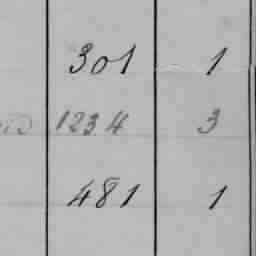 301 1
1234 3
481 1